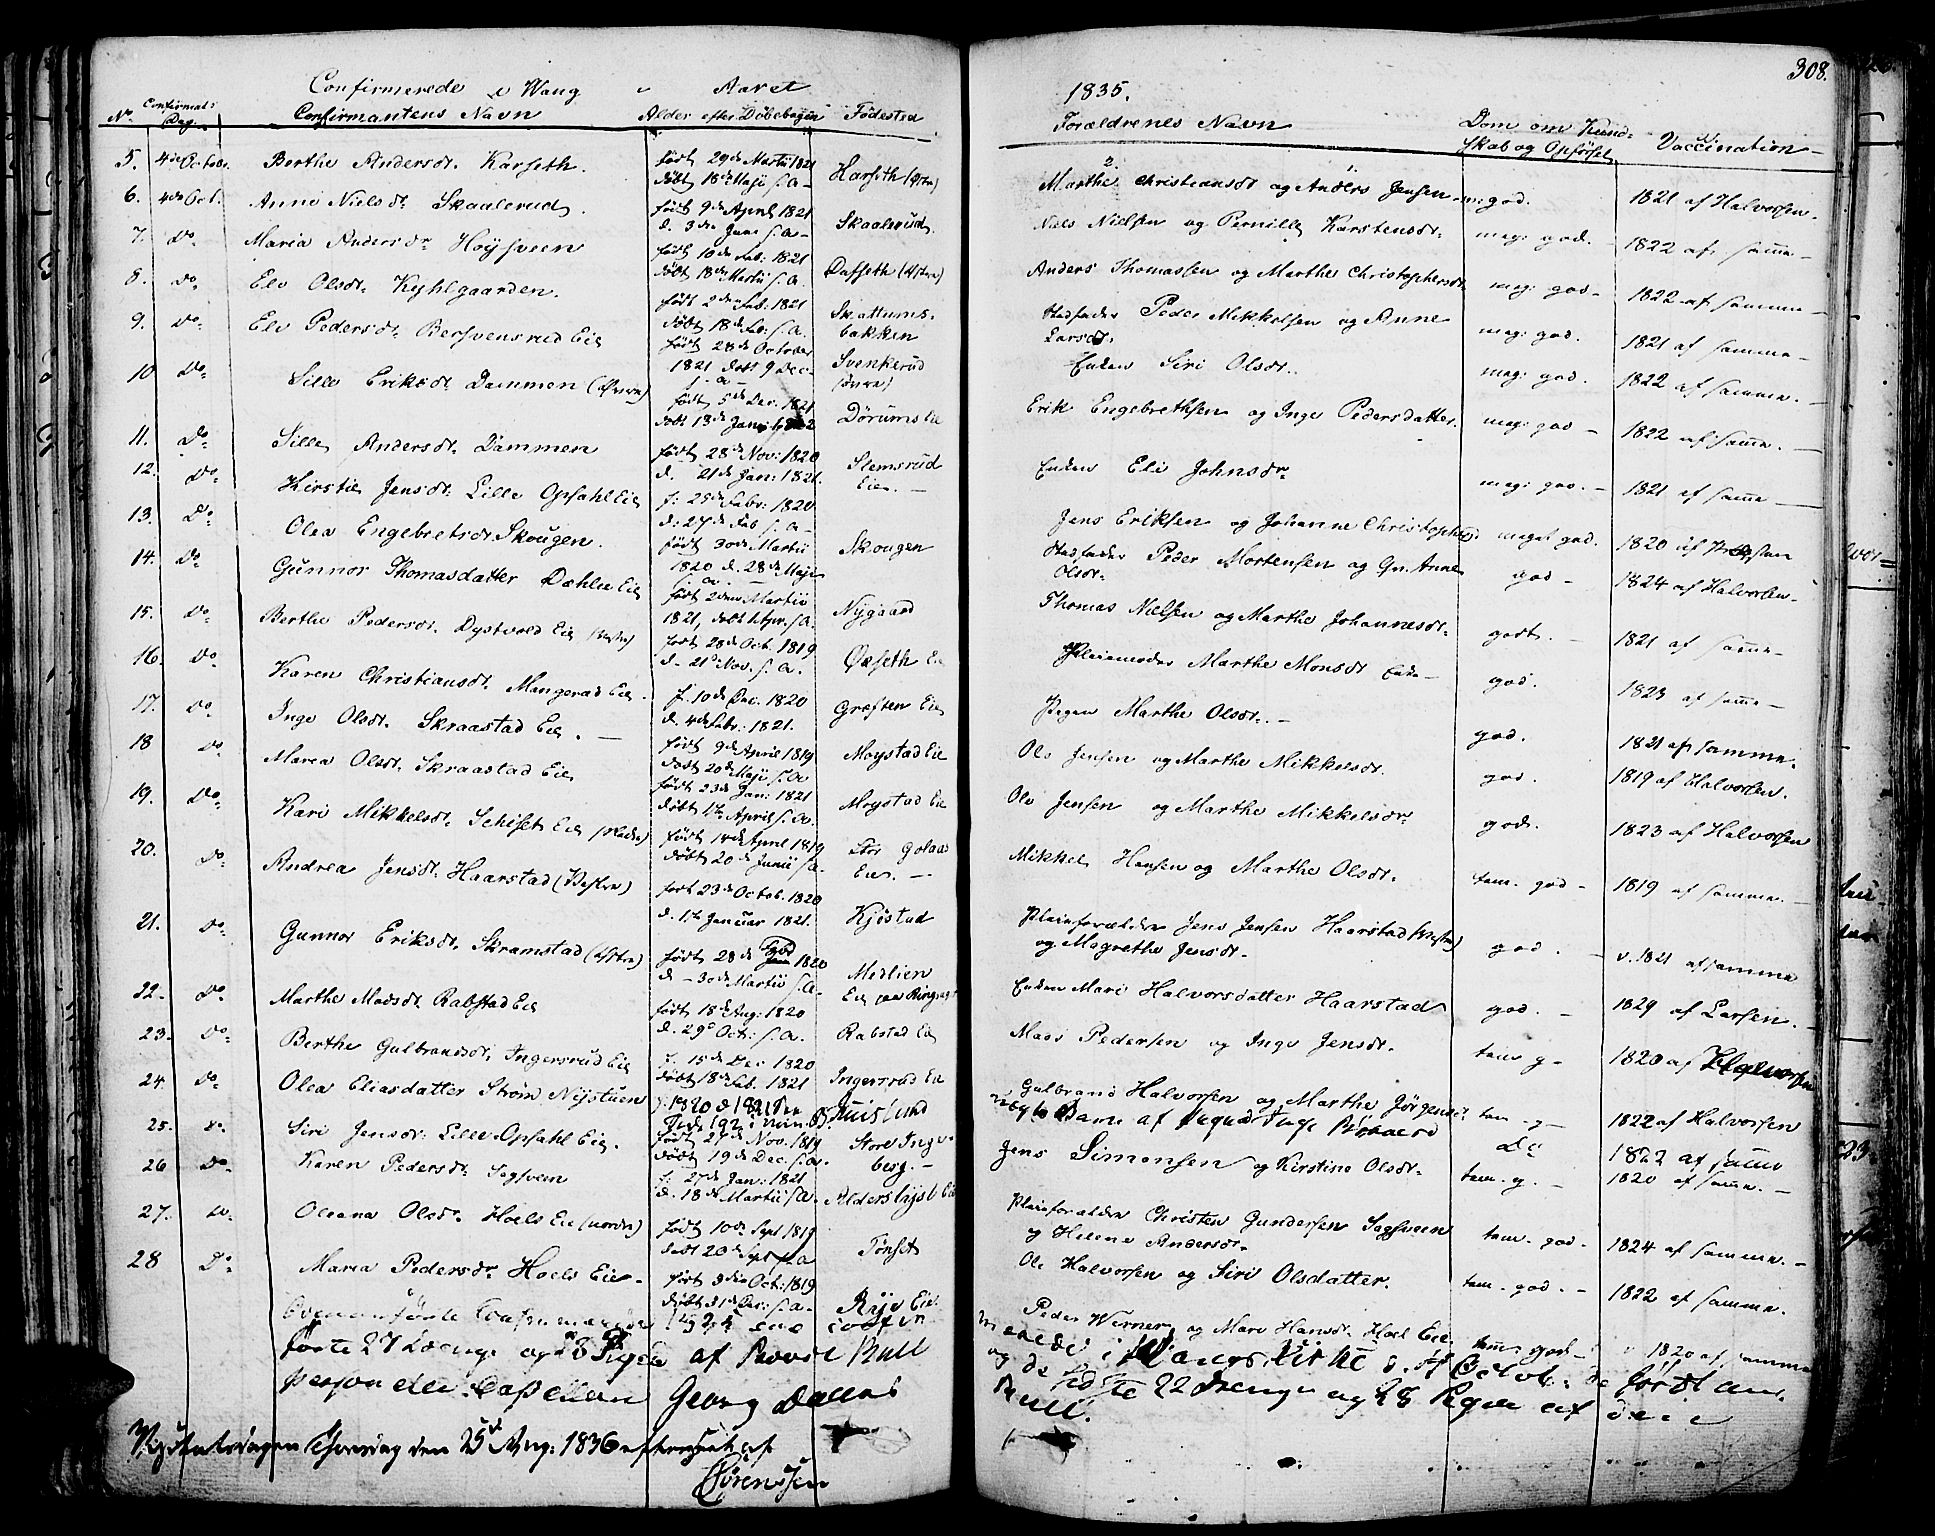 Confirmerede i Wang Aaret
No. Confirmat: Dag. Confirmantens Navn Alder efter Døbebogen Fødested
5. 4de Octobr. Berthe Andersdt. Karseth. født 29de Martii 1821 Harseth (Østre)
døbt 18de Maji s. a.
6. 4de Oct. Anne Nielsdt. Skaalerud. født 9de April 1821 Skaalerud.
d. 3die Juni s. a.
7. Do Maria Andersdr Høysveen født 10de Feb: 1821 Dafseth (Østre)
døbt 18de Martii s. a.
8. Do Elv Olsdt. Kyhlgaarden. født 2den Feb. 1821 Skattums-
døbt 18de Feb: s. a. bakken
9. Do Elv Pedersdt. Bersvensrud Eie født 28de October Svenkerud
1821 døbt 9 Dec. (øvre)
s. a.
10 Do Sille Eriksdt. Dammen (Øvern) født 5te Dec. 1821 Dørums Eie
døbt 13de Januar 1822
11. Do Sille Andersdt. Dammen født 28de Nov: 1820 Stemsrud
d. 21de Jan: 1821. Eie.
12. Do Kirstie Jensdt. Lille Opsahl Eie f: 25de Febr: 1820
d: 27de Feb s. a.
13. Do Olea Engebretsdt. Skougen. født 30de Martii Skougen
1820 d. 28de Maji
s. a.
14. Do Gunnor Thomasdatter Dæhlie Eie født 2den Martii Nygaard
1821, døbt 1 Apr. s. a.
15. Do Berthe Pedersdt. Dystvold Eie (Vestre) født 28de Oct. 1819 Øfseth Eie
d. 21de Nov. s. a.
16. Do Karen Christiansdt. Mangerud Eie f. 10de Dec. 1820 Græften Eie
d. 4de Febr: 1821.
17. Do Inge Olsdt. Skraastad Eie. født 9de April 1819 Moystad Eie
døbt 20de Maji s. a.
18 Do Marea Olsdt. Skraastad Eie født 23de Jan: 1821 Moystad Eie
døbt 1ste April s. a.
19. Do Kari Mikkelsdt. Schiset Eie født 14de April 1819 Stor
døbt 20de Junii s. a. Eie.
20. Do Andrea Jensdt. Haarstad (Vestre) født 23de Octob. 1820 Kjøstad
d. 1ste Januar 1821.
21. Do Gunnor Eriksdt. Skramstad (Østre) født 28de 1820 Medlien
d. 30de Martii s. a. Eie
22. Do Marthe Madsdt. Rabstad Eie født 18de Aug: 1820 Rabstad Eie
d. 29de Oct: s. a.
23. Do Berthe Gulbrandsdt. Ingersrud Eie f. 15de Dec 1820 Ingersrud Eie
døbt 18de Feb. 1821
24. Do Olea Eliasdatter Strøm Nystuen f: 1820 d 1821
25. Do Siri Jensdt. Lille Opsahl Eie. født 27de Nov. 1819 Store Inge-
døbt 19de Dec. s. a. berg.
26 Do Karen Pedersdt. Sogsveen f: 27de Jan: 1821
d. 18de Martii s. a.
27. Do Oleana Olsdr. Hoels Eie (nordre) født 10de Sept 1819 Tønset
døbt 20de Sept s. a.
28 Do Maria Pedersdr. Hoels Eie født 8de Oct: 1819 Rye Eie
døbt 1de Dec: s. a.
Ovenanførte Confirmerede
første 27 Drenge og 28 Piger af Provst Bull
personellen Capellan Georg Dallens
Mystatsdagen Thorsdag den 25de Aug: 1836 efterseet af
Sørenssen
308.
1835.
Forældrenes Navn Dom om Kund- Vaccination
skab og Opførsel
Marthe Christiansdt og Anders Jensen meg: god. 1821 af Halvorsen.
Niels Nielsen og Pernille Karstensdt. meg: god. 1822 af samme
Anders Thomassen og Marthe Christophersdt meg: god 1822 af samme
Stedfader Peder Mikkelsen og Anne meg: god. 1821 af samme
Larsdt.
Enken Siri Olsdt. meg: god. 1822 af samme.
Erik Engebrethsen og Inge Pedersdatter. meg: god 1822 af samme.
Enken Eli Johnsdr meg: god. 1821 af samme
Jens Eriksen og Johanne Christophersd meget god. 1820 af
Stedfader Peder Mortensen og Gu. Anne god 1824 af Halvorsen
Olsdt.
Thomas Nielsen og Marthe Johannesdt. godt. 1821 af samme
Pleiemoder Marthe Monsdt Enke god. 1823 af samme
Pigen Marthe Olsdt. god. 1821 af samme.
Ole Jensen og Marthe Mikkelsdt. god 1819 af Halvorsen.
Ole Jensen og Marthe Mikkelsdr. god. 1823 af Halvorsen
Mikkel Hansen og Marthe Olsdt. tem. god 1819 af samme.
Pleieforældre Jens Jensen Haarstad (Vestre) god. v. 1821 af samme
og Magrethe Jensdt.
Enken Mari Halvorsdatter Haarstad god. 1829 af Larsen.
Mads Pedersen og Inge Jensdt. tem g 1820 af Halvorsen
Gulbrand Halvorsen og Marthe Jørgensdt tem g 1822 af Halvorsen
Barn af Do 1822 af samme
Jens Simensen og Kirstine Olsdt. tem. g. 1820 af samme.
Pleieforældre Christen Gundersen Sagsveen tem. god. 1824 af samme.
og Helene Andersdt.
Ole Halvorsen og Siri Olsdatter. tem. god. 1822 af samme.
Peder Werner og Mari Hansdt. Hoel Eie. tem god 1820 af samme
i Wangs Kirke
og de sidste 22 Drenge og 28 Piger af
Bull.